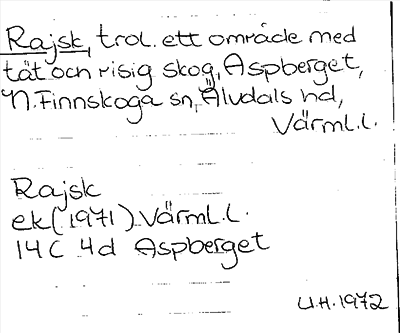 Rajsk, trol. ett område med
tät och risig skog, Aspberget,
N. Finnskoga sn, Älvdals hd,
Värml.l.
Rajsk
ek (1971) Värml.l.
14C 4d Aspberget
U.H. 1972